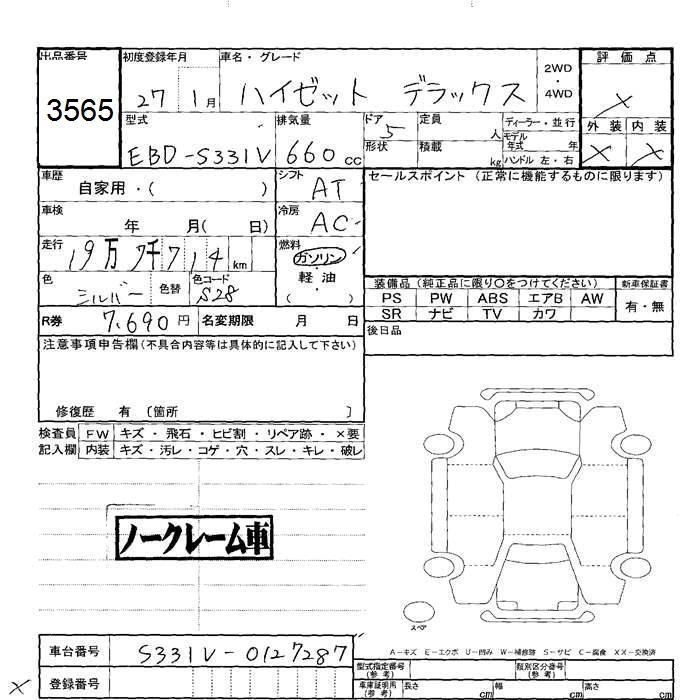 出品番号 初度登録年月 車名・グレード 2WD ・ 4WD 評価点
3565 27 1月 ハイゼット デラックス ×
型式 排気量 ドア 5 定員 人 ディーラー・並行 外装 内装
EBD-S331V 660cc 形状 積載 kg モデル年式 年 ハンドル 左・右 × ×
車歴 自家用・( ) シフト AT セールスポイント (正常に機能するものに限ります)
車検 年 月( 日) 冷房 AC
走行 19万7千714km 燃料 ガソリン・軽油・( )
色 シルバー 色替 色コード S28
装備品 (純正品に限り〇をつけてください) 新車保証書
PS PW ABS エアB AW 有・無
SR ナビ TV カワ
R券 7,690円 名変期限 月 日 後日品
注意事項申告欄(不具合内容等は具体的に記入して下さい)
修復歴 有 〔箇所 〕
検査員 FW キズ・飛石・ヒビ割・リペア跡・×要
記入欄 内装 キズ・汚レ・コゲ・穴・スレ・キレ・破レ
ノークレーム車
スペア
A-キズ E-エクボ U-凹み W-補修跡 S-サビ C-腐食 XX-交換済
車台番号 S331V-0127287
型式指定番号(参考) 類別区分番号(参考)
× 登録番号 車庫証明用(参考) 長さ cm 幅 cm 高さ cm